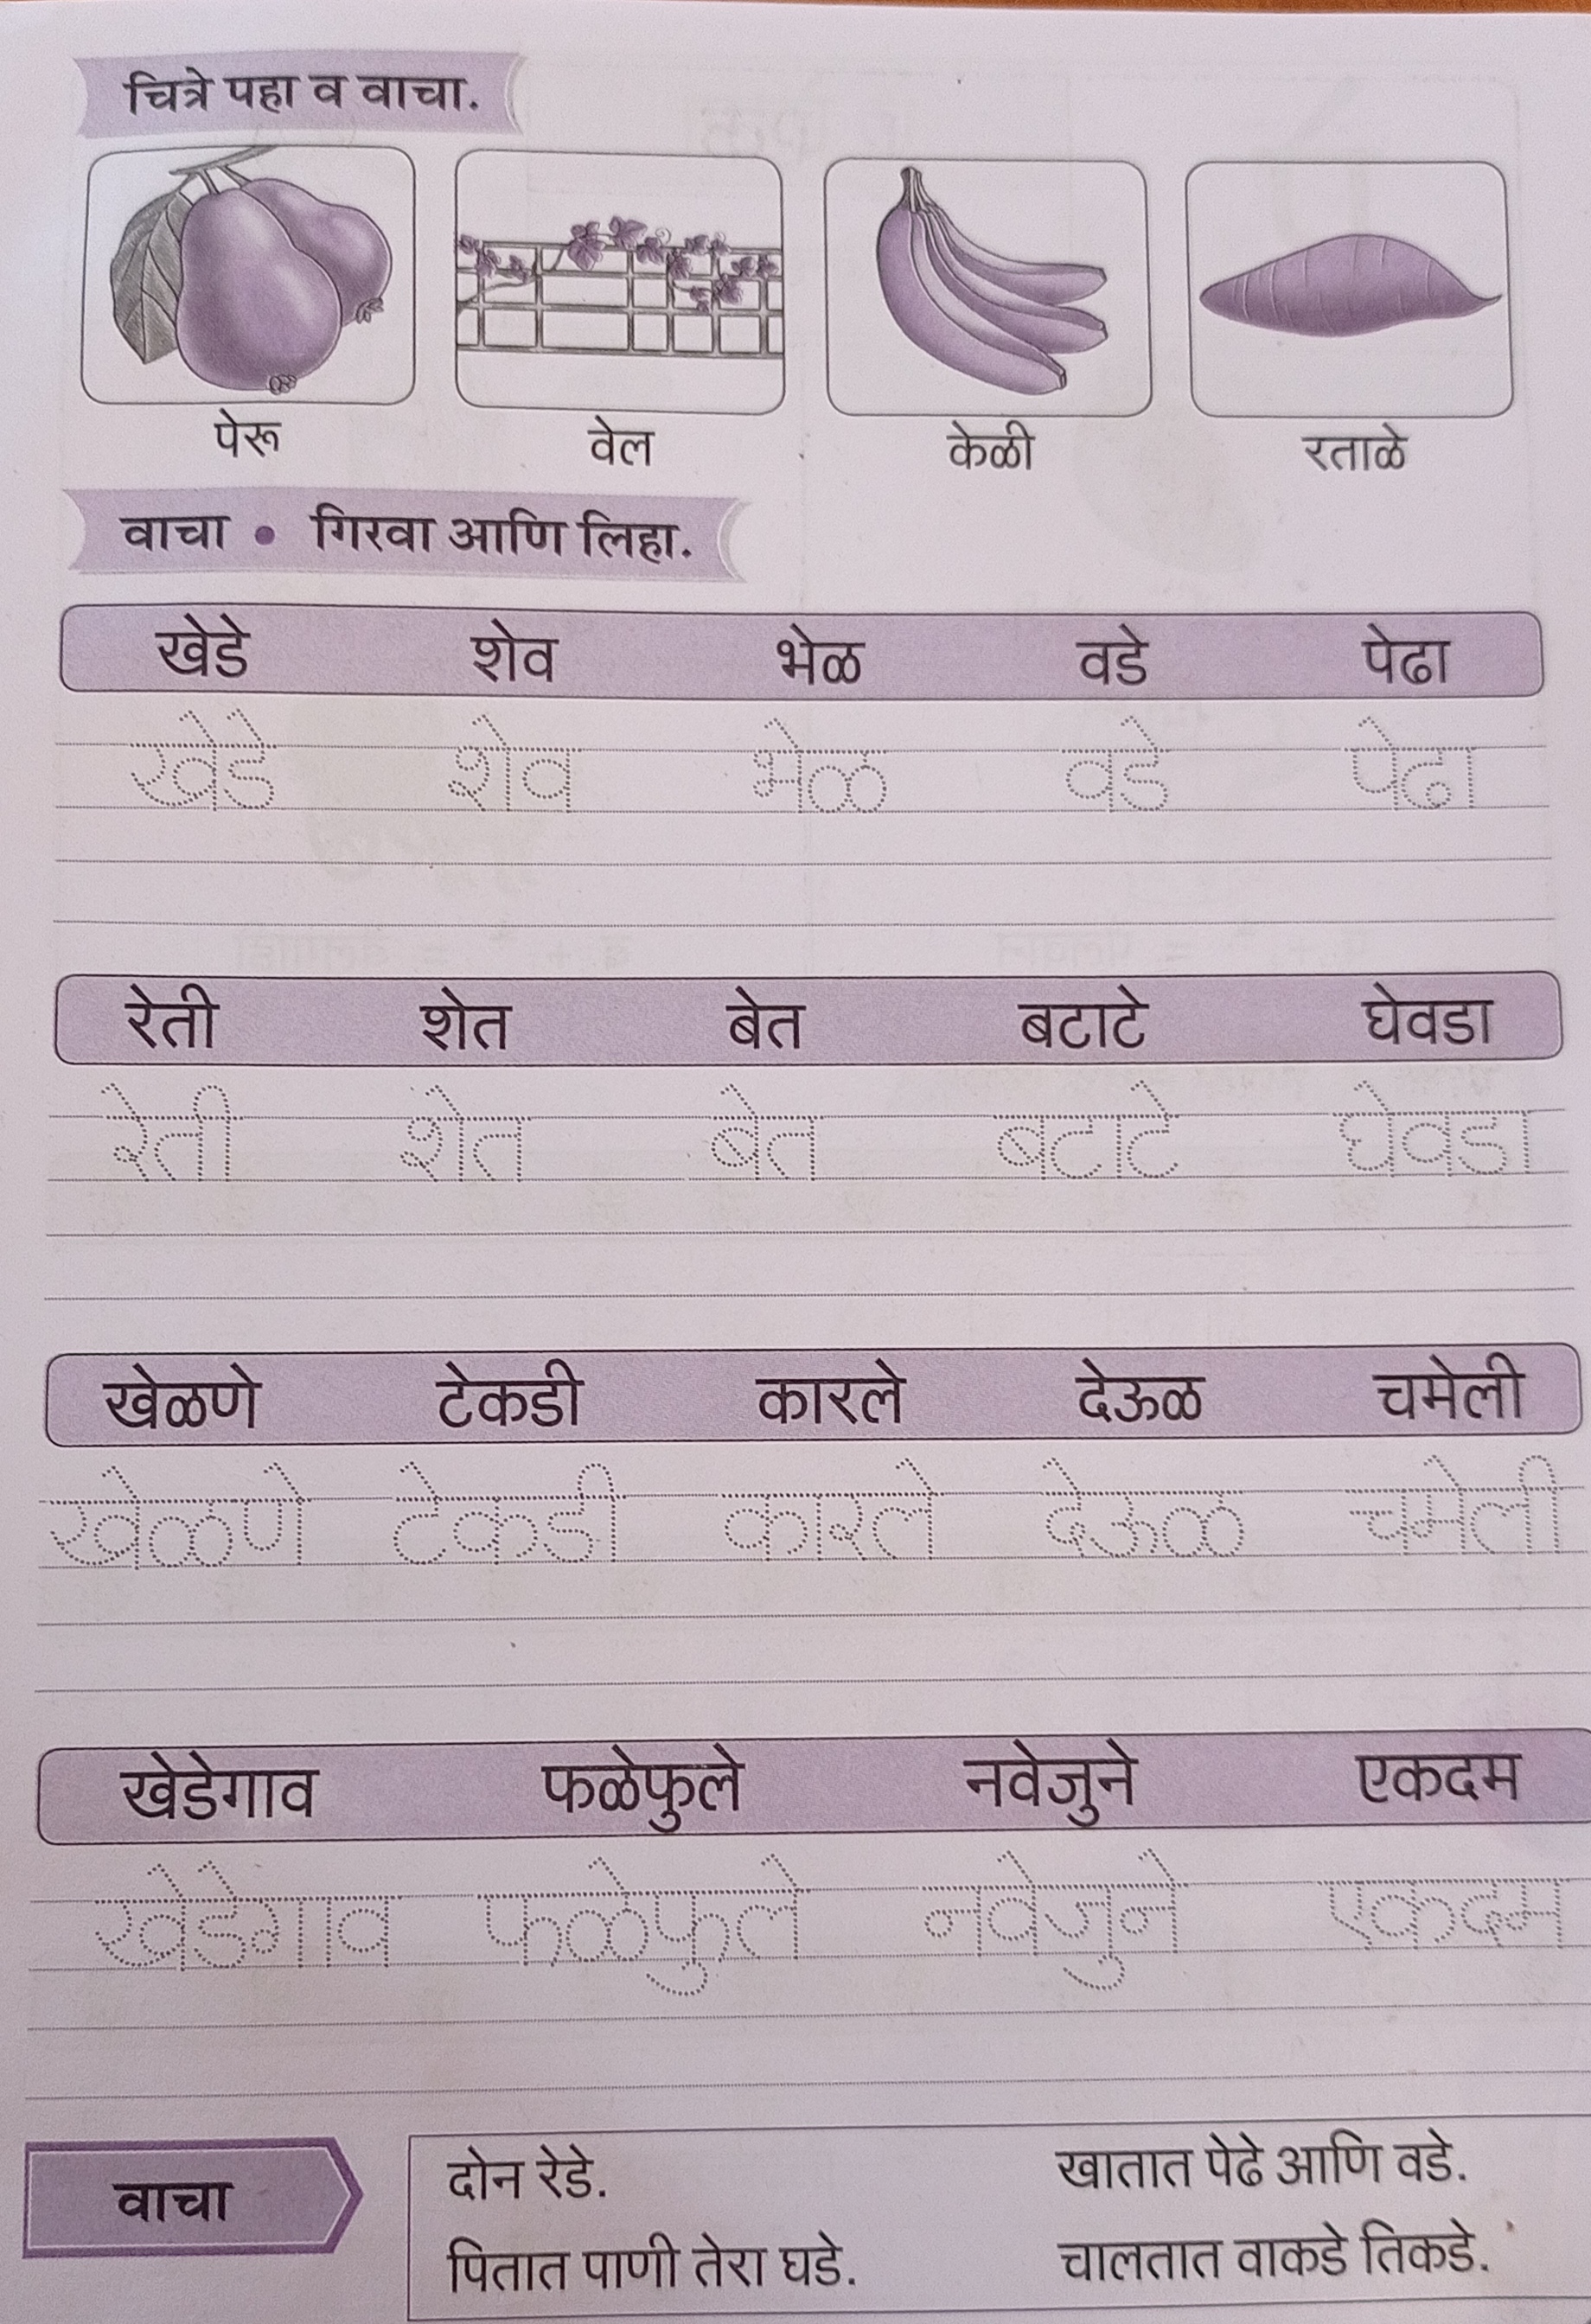 चित्रे पहा व वाचा.
पेरू वेल केळी रताळे
वाचा • गिरवा आणि लिहा.
खेडे शेव भेळ वडे पेढा
खेडे शेव भेळ वडे पेढा
रेती शेत बेत बटाटे घेवडा
रेती शेत बेत बटाटे घेवडा
खेळणे टेकडी कारले देऊळ चमेली
खेळणे टेकडी कारले देऊळ चमेली
खेडेगाव फळेफुले नवेजुने एकदम
खेडेगाव फळेफुले नवेजुने एकदम
वाचा
दोन रेडे. खातात पेढे आणि वडे.
पितात पाणी तेरा घडे. चालतात वाकडे तिकडे.